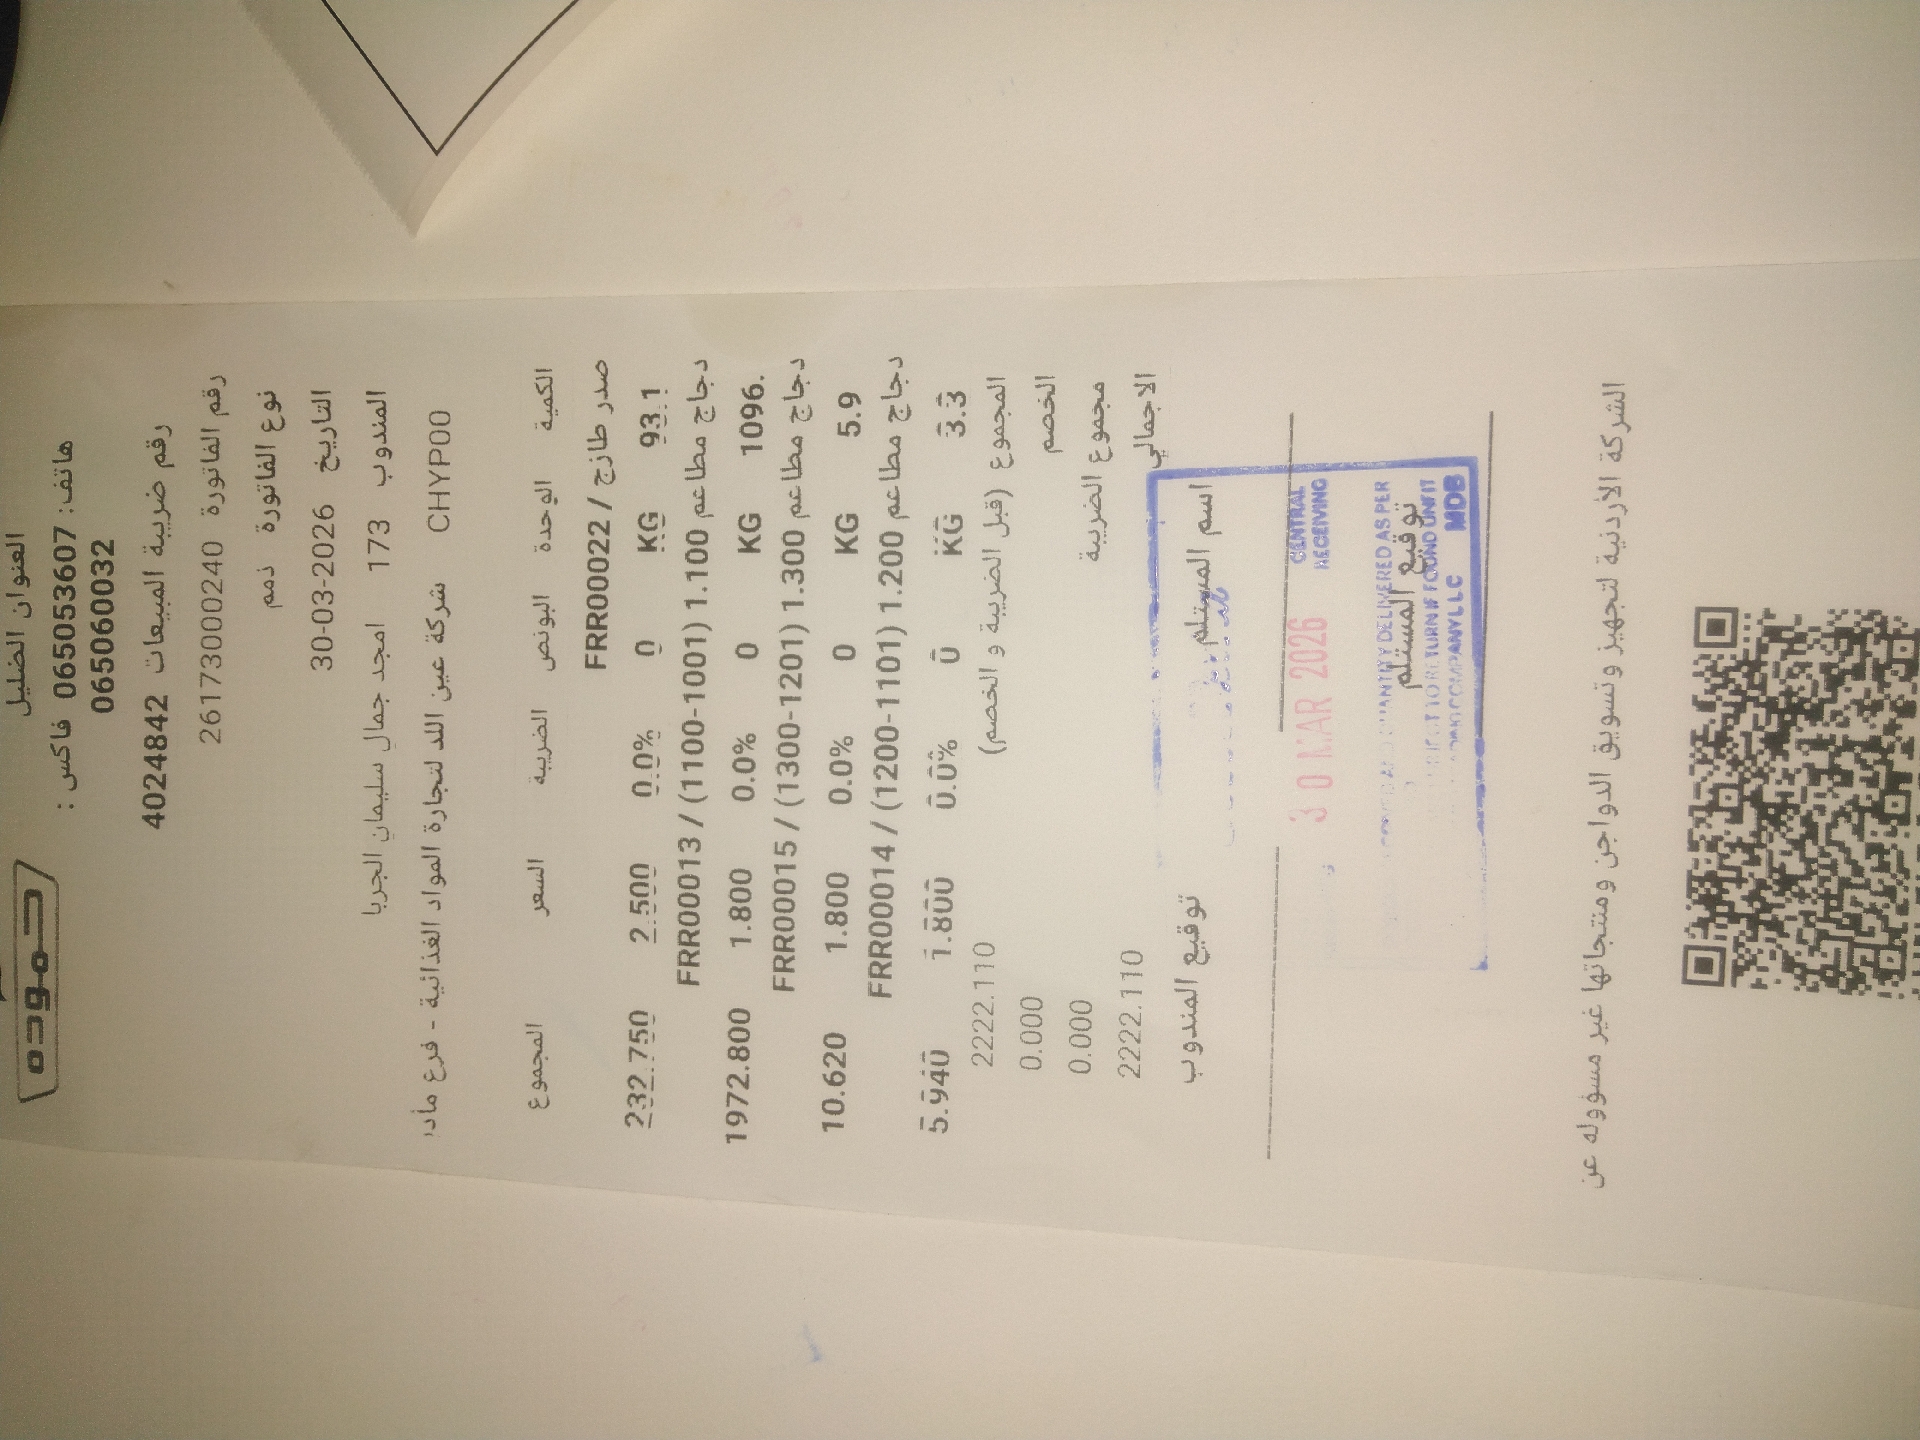 حموده
العنوان الضليل
هاتف: 065053607 فاكس :
065060032
رقم ضريبة المبيعات 4024842
رقم الفاتورة 26173000240
نوع الفاتورة ذمم
التاريخ 30-03-2026
المندوب 173 امجد جمال سليمان الجربا
CHYP00 شركة عين اللد لتجارة المواد الغذائية - فرع مأد
الكمية الوحدة البونص الضريبة السعر المجموع
صدر طازج / FRR00022
93.1 KG 0 0.0% 2.500 232.750
دجاج مطاعم 1.100 (1001-1100) / FRR00013
1096. KG 0 0.0% 1.800 1972.800
دجاج مطاعم 1.300 (1201-1300) / FRR00015
5.9 KG 0 0.0% 1.800 10.620
دجاج مطاعم 1.200 (1101-1200) / FRR00014
3.3 KG 0 0.0% 1.800 5.940
المجموع (قبل الضريبة و الخصم) 2222.110
الخصم 0.000
مجموع الضريبة 0.000
الاجمالي 2222.110
اسم المستلم توقيع المندوب
CENTRAL
RECEIVING
30 MAR 2026
QUANTITY DELIVERED AS PER
توقيع المستلم
TO RETURN IF FOUND UNFIT
COMPANY LLC MDB
الشركة الأردنية لتجهيز وتسويق الدواجن ومنتجاتها غير مسؤوله عن